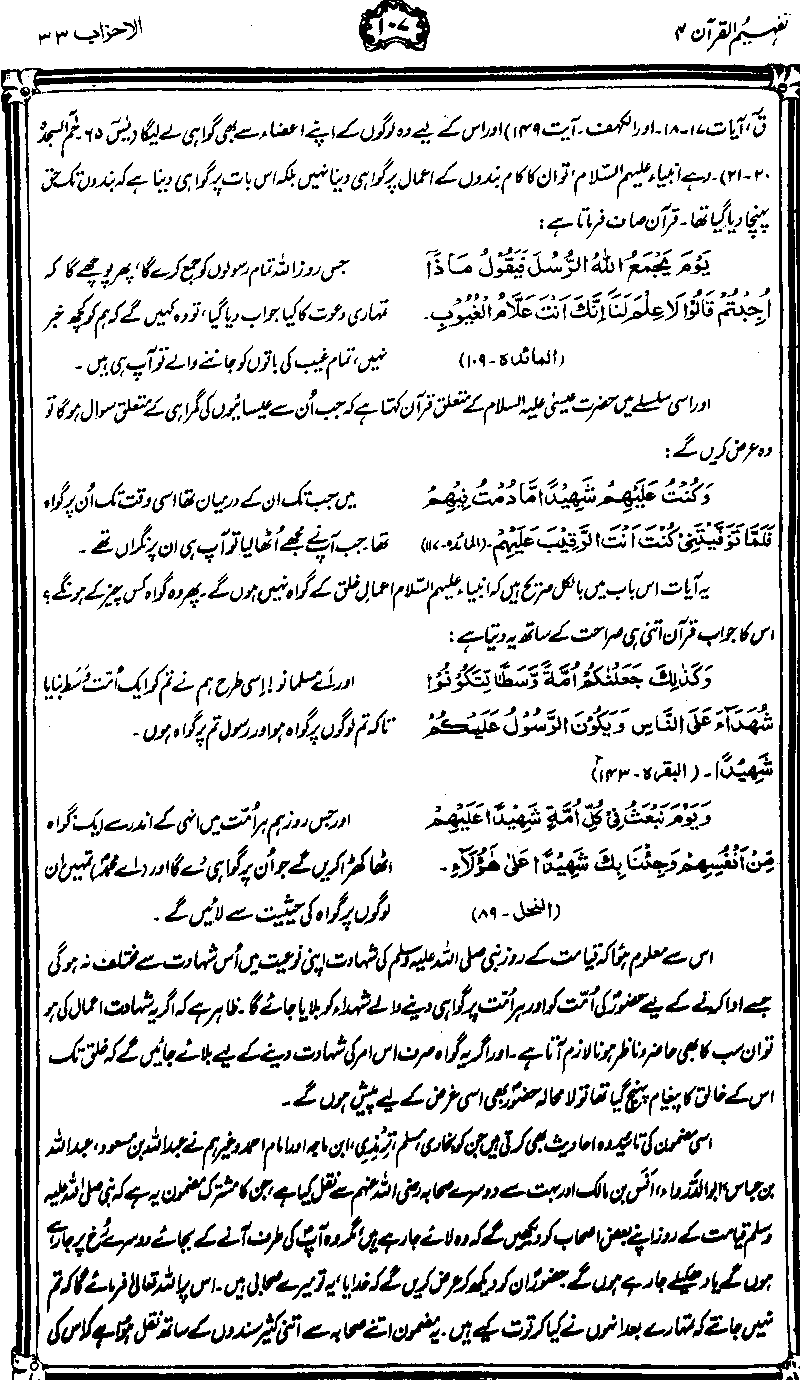 تفہیم القرآن ۴
۱۰۷
الاحزاب ۳۳
قٓ، آیات ۱۷-۱۸- اور الکہف- آیت ۴۹) اور اس کے لیے وہ لوگوں کے اپنے اعضاء سے بھی گواہی لے لیگا (یٰس ۶۵ حٰم السجدہ
۲۰-۲۱)- رہے انبیاء علیہم السّلام، تو ان کا کام بندوں کے اعمال پر گواہی دینا نہیں بلکہ اس بات پر گواہی دینا ہے کہ بندوں تک حق
پہنچا دیا گیا تھا- قرآن صاف فرماتا ہے:
یَوْمَ یَجْمَعُ اللّٰهُ الرُّسُلَ فَیَقُوْلُ مَاذَآ
اُجِبْتُمْ قَالُوْا لَا عِلْمَ لَنَا اِنَّكَ اَنْتَ عَلَّامُ الْغُیُوْبِ-
(المائدۃ-۱۰۹)
جس روز اللہ تمام رسولوں کو جمع کرے گا، پھر پوچھے گا کہ
تمہاری دعوت کا کیا جواب دیا گیا، تو وہ کہیں گے کہ ہم کو کچھ خبر
نہیں، تمام غیب کی باتوں کو جاننے والے تو آپ ہی ہیں-
اور اسی سلسلے میں حضرت عیسیٰ علیہ السلام کے متعلق قرآن کہتا ہے کہ جب اُن سے عیسائیوں کی گمراہی کے متعلق سوال ہوگا تو
وہ عرض کریں گے:
وَكُنْتُ عَلَیْهِمْ شَهِیْدًا مَّا دُمْتُ فِیْهِمْ
فَلَمَّا تَوَفَّیْتَنِیْ كُنْتَ اَنْتَ الرَّقِیْبَ عَلَیْهِمْ-(المائدہ-۱۱۷)
میں جب تک ان کے درمیان تھا اسی وقت تک اُن پر گواہ
تھا- جب آپ نے مجھے اُٹھا لیا تو آپ ہی ان پر نگراں تھے-
یہ آیات اس باب میں بالکل صریح ہیں کہ انبیاء علیہم السّلام اعمالِ خلق کے گواہ نہیں ہوں گے- پھر وہ گواہ کس چیز کے ہونگے؟
اس کا جواب قرآن اتنی ہی صراحت کے ساتھ یہ دیتا ہے:
وَكَذٰلِكَ جَعَلْنٰكُمْ اُمَّةً وَّسَطًا لِّتَكُوْنُوْا
شُهَدَآءَ عَلَى النَّاسِ وَیَكُوْنَ الرَّسُوْلُ عَلَیْكُمْ
شَهِیْدًا- (البقرۃ-۱۴۳)
اور اَے مسلمانو! اِسی طرح ہم نے تم کو ایک اُمّت وَسَط بنایا
تاکہ تم لوگوں پر گواہ ہو اور رسول تم پر گواہ ہوں-
وَیَوْمَ نَبْعَثُ فِیْ كُلِّ اُمَّةٍ شَهِیْدًا عَلَیْهِمْ
مِّنْ اَنْفُسِهِمْ وَجِئْنَا بِكَ شَهِیْدًا عَلٰى هٰٓؤُلَآءِ-
(النحل-۸۹)
اور جس روز ہم ہر اُمّت میں انہی کے اندر سے ایک گواہ
اٹھا کھڑا کریں گے جو اُن پر گواہی دے گا اور (اے محمدؐ) تمہیں ان
لوگوں پر گواہ کی حیثیت سے لائیں گے-
اس سے معلوم ہُوا کہ قیامت کے روز نبی صلی اللہ علیہ وسلم کی شہادت اپنی نوعیت میں اُس شہادت سے مختلف نہ ہوگی
جسے ادا کرنے کے لیے حضورؐ کی اُمّت کو اور ہر اُمّت پر گواہی دینے والے شہداء کو بلایا جائے گا- ظاہر ہے کہ اگر یہ شہادت اعمال کی ہو
تو ان سب کا بھی حاضر و ناظر ہونا لازم آتا ہے- اور اگر یہ گواہ صرف اس امر کی شہادت دینے کے لیے بلائے جائیں گے کہ خلق تک
اس کے خالق کا پیغام پہنچ گیا تھا تو لا محالہ حضورؐ بھی اسی غرض کے لیے پیش ہوں گے-
اسی مضمون کی تائید وہ احادیث بھی کرتی ہیں جن کو بخاری، مسلم، ترمذی، ابن ماجہ اور امام احمد وغیرہم نے عبداللہ بن مسعود، عبداللہ
بن عباس، ابوالدَّرداء، انَس بن مالک اور بہت سے دوسرے صحابہ رضی اللہ عنہم سے نقل کیا ہے، جن کا مشترک مضمون یہ ہے کہ نبی صلی اللہ علیہ
وسلم قیامت کے روز اپنے بعض اصحاب کو دیکھیں گے کہ وہ لائے جا رہے ہیں، مگر وہ آپؐ کی طرف آنے کے بجائے دوسرے رُخ پر جا رہے
ہوں گے یا دھکیلے جا رہے ہوں گے- حضورؐ ان کو دیکھ کر عرض کریں گے کہ خدایا، یہ تو میرے صحابی ہیں- اس پر اللہ تعالیٰ فرمائے گا کہ تم
نہیں جانتے کہ تمہارے بعد انہوں نے کیا کرتوت کیے ہیں- یہ مضمون اتنے صحابہ سے اتنی کثیر سندوں کے ساتھ نقل ہُوا ہے کہ اس کی